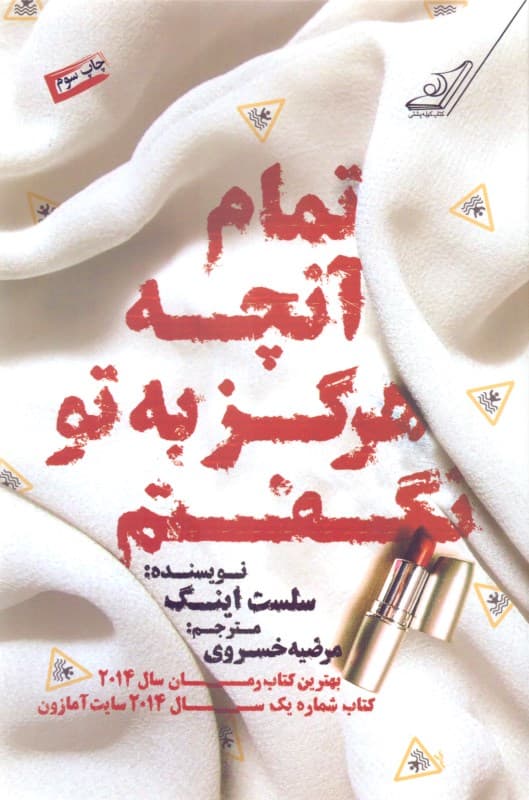 چاپ سوم
کتاب کوله پشتی
تمام
آنچه
هرگز به تو
نگفتم
نویسنده:
سلست اینگ
مترجم:
مرضیه خسروی
بهترین کتاب رمان سال ۲۰۱۴
کتاب شماره یک سال ۲۰۱۴ سایت آمازون